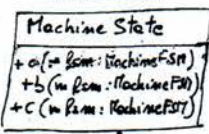 Machine State
+ a(m fsm: MachineFSM)
+b (m fsm: MachineFSM)
+C (m fsm: MachineFSM)